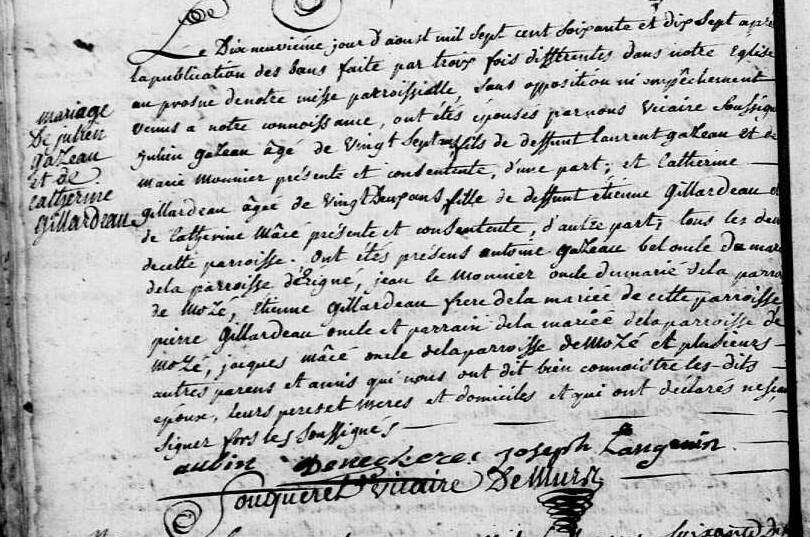 mariage
De julien
gazeau
et de
Catherine
Gillardeau
Le Dixneuvième jour D'aoust mil sept cent soixante et dix sept apre
la publication des bans faite par troix fois differentes dans notre Eglise
au prosne de notre messe parroissialle sans opposition ni empêchement
venus a notre connoissance, ont étés épousés par nous Vicaire soussigné
julien gazeau âgé de vingt sept ans fils de deffunt laurent gazeau et de
Marie Monnier présente et consentente, d'une part; et Catherine
Gillardeau âgée de vingt Deux ans fille de deffunt étienne Gillardeau et
de Catherine Mâcé présente et consentente, d'autre part; tous les deux
de cette parroisse. Ont étés présens antoine gazeau bel oncle du marié
de la parroisse d'Erigné, jean le Monnier oncle du marié de la parro
de Mozé, Etienne Gillardeau frere de la mariée de cette parroisse
pierre Gillardeau oncle et parrain de la mariée de la parroisse de
Mozé, jacques Mâcé oncle de la parroisse de Mozé et plusieurs
autres parens et amis qui nous ont dit bien connoistre les dits
epoux, leurs peres et meres et domiciles et qui ont déclarés ne scav
signer fors les soussignés
aubin Deneckere joseph Langevin
Souqueret Vicaire De Murs
soixante dix